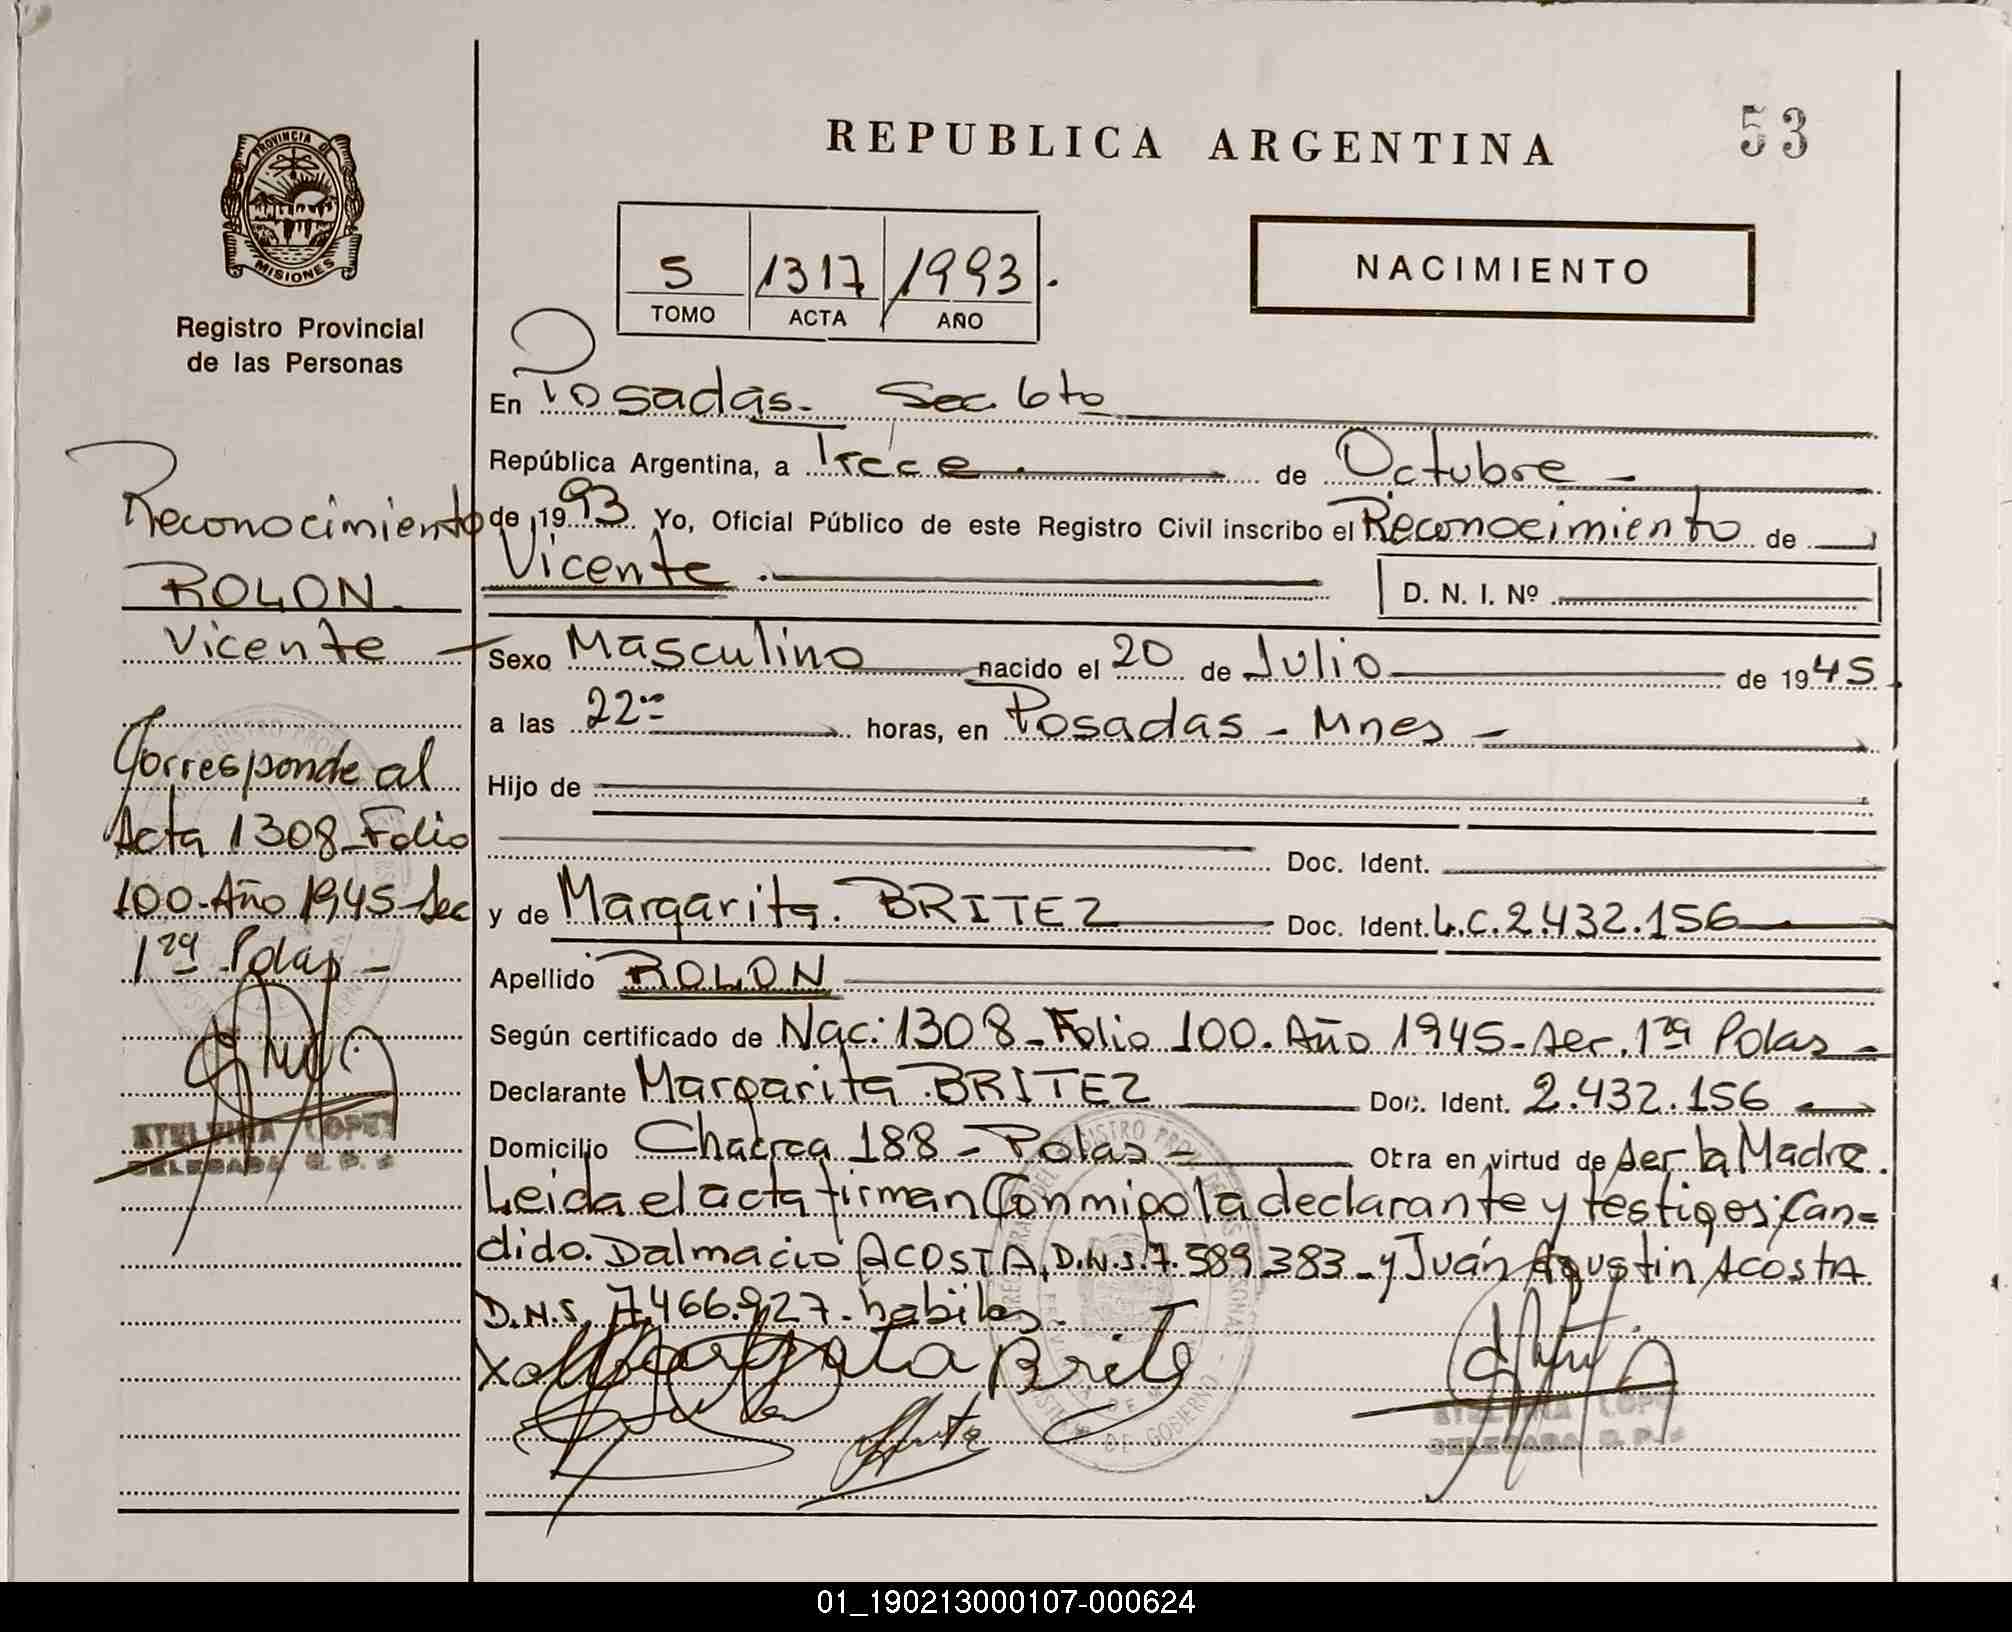 REPUBLICA ARGENTINA
53
PROVINCIA DE
MISIONES
Registro Provincial
de las Personas
5 1317 1993.
TOMO ACTA AÑO
NACIMIENTO
En Posadas. Sec. 6to
República Argentina, a Trece. de Octubre -
de 1993 Yo, Oficial Público de este Registro Civil inscribo el Reconocimiento de
Vicente. D. N. I. Nº
Sexo Masculino nacido el 20 de Julio de 1945
a las 22 horas, en Posadas - Mnes -
Hijo de
Doc. Ident.
y de Margarita. BRITEZ Doc. Ident. L.C. 2.432.156
Apellido ROLON
Según certificado de Nac: 1308 - Folio 100. Año 1945 - Ser. 1ra Pdas -
Declarante Margarita BRITEZ Doc. Ident. 2.432.156
Domicilio Chacra 188 - Pdas - Otra en virtud de ser la Madre.
Leida el acta firman Con mipo la declarante y testigos: Can=
dido. Dalmacio ACOSTA, D.N.I. 7.589.383 - y Juán Agustin ACOSTA
D.N.I. 7.466.927. habiles.
Reconocimiento
ROLON.
Vicente
Corresponde al
Acta 1308 - Folio
100 - Año 1945 - Sec
1ra Pdas -
LOPEZ
DELEGADA
Margarita Brite
LOPE
DELEGADA
01_190213000107-000624